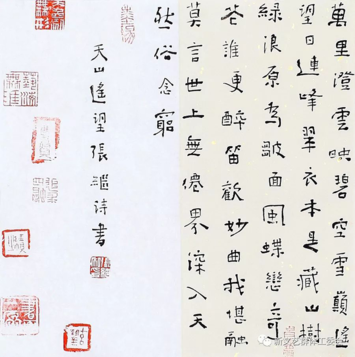 萬里澄雲映碧空雪巔遙
望日連峰翠衣本是藏山樹
綠浪原為皺面風蝶戀奇
花誰更醉笛歡妙曲我堪融
莫言世上無僊界深入天
然俗念窮
天山遙望張繼诗書